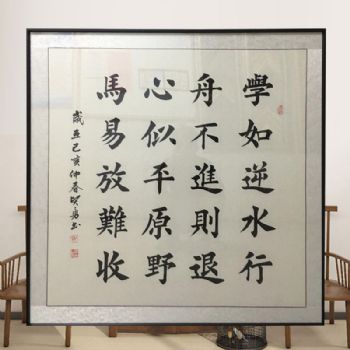 學如逆水行
舟不進則退
心似平原野
馬易放難收
歲在己亥仲春